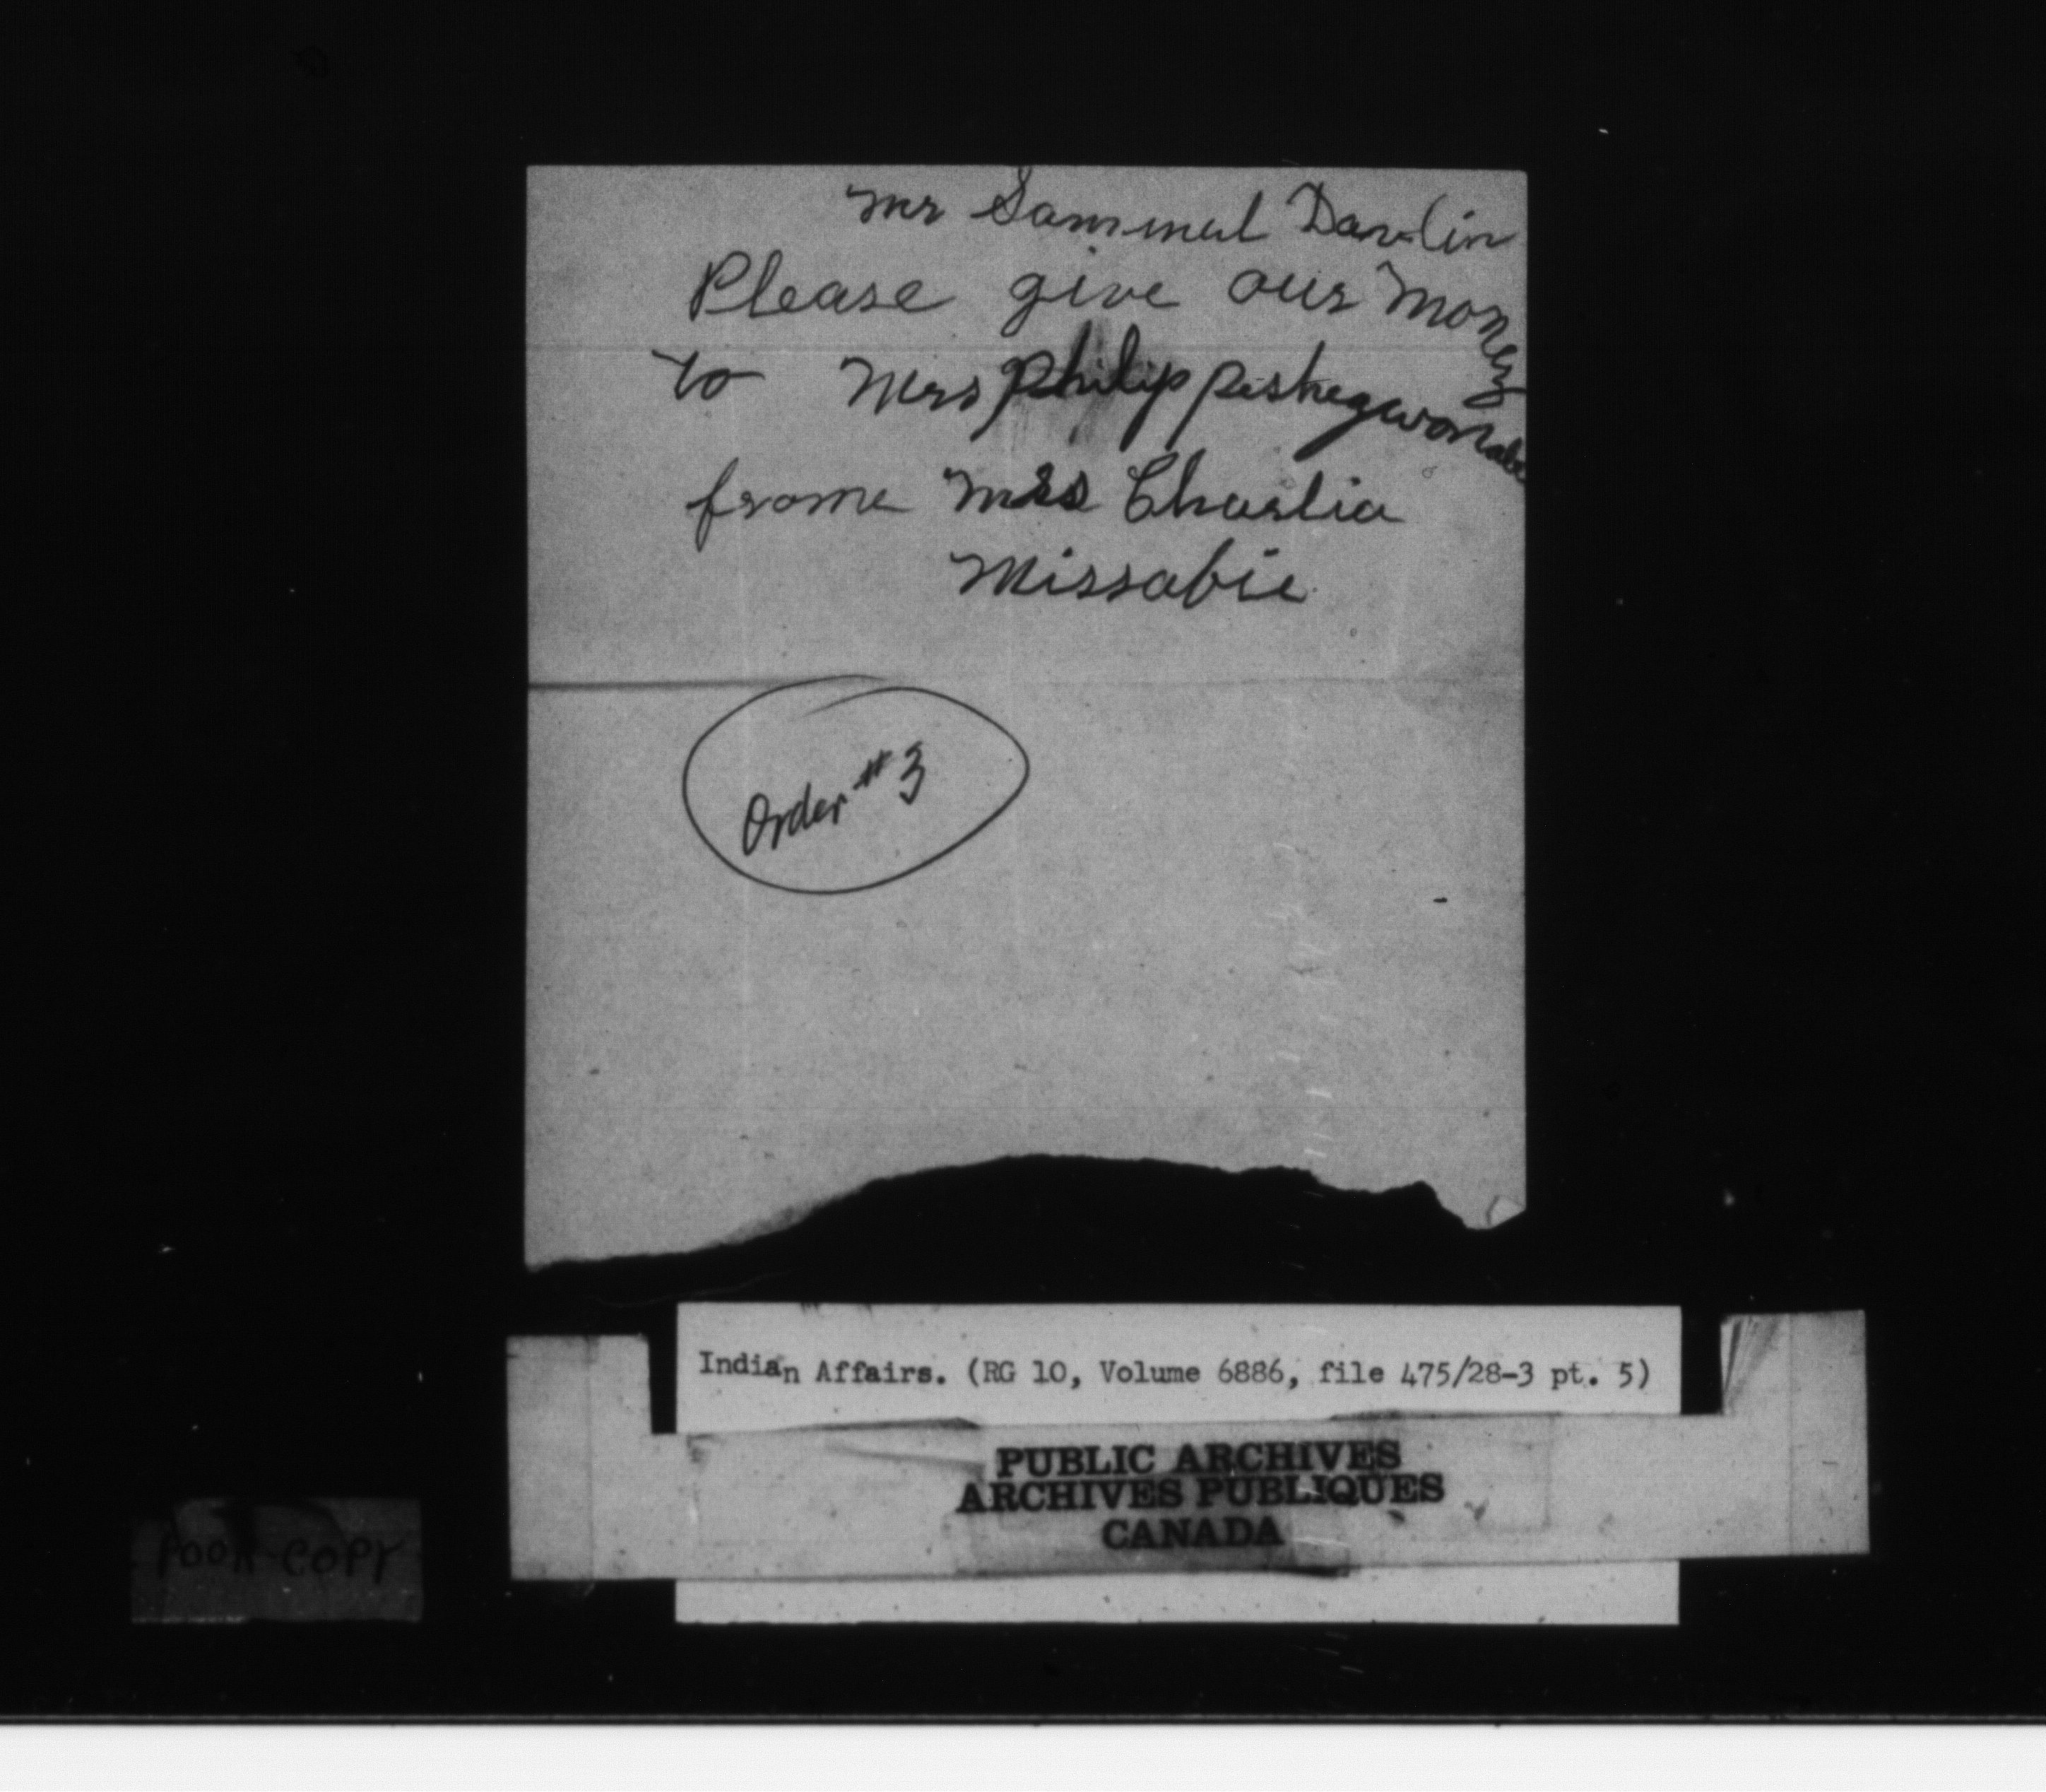 Mr Sammuel Davlin
Please give our money
to Mrs Philip Peshegwonabe
frome Mrs Charlia
Missabie
Order #3
Indian Affairs. (RG 10, Volume 6886, file 475/28-3 pt. 5)
PUBLIC ARCHIVES
ARCHIVES PUBLIQUES
CANADA
POOR COPY